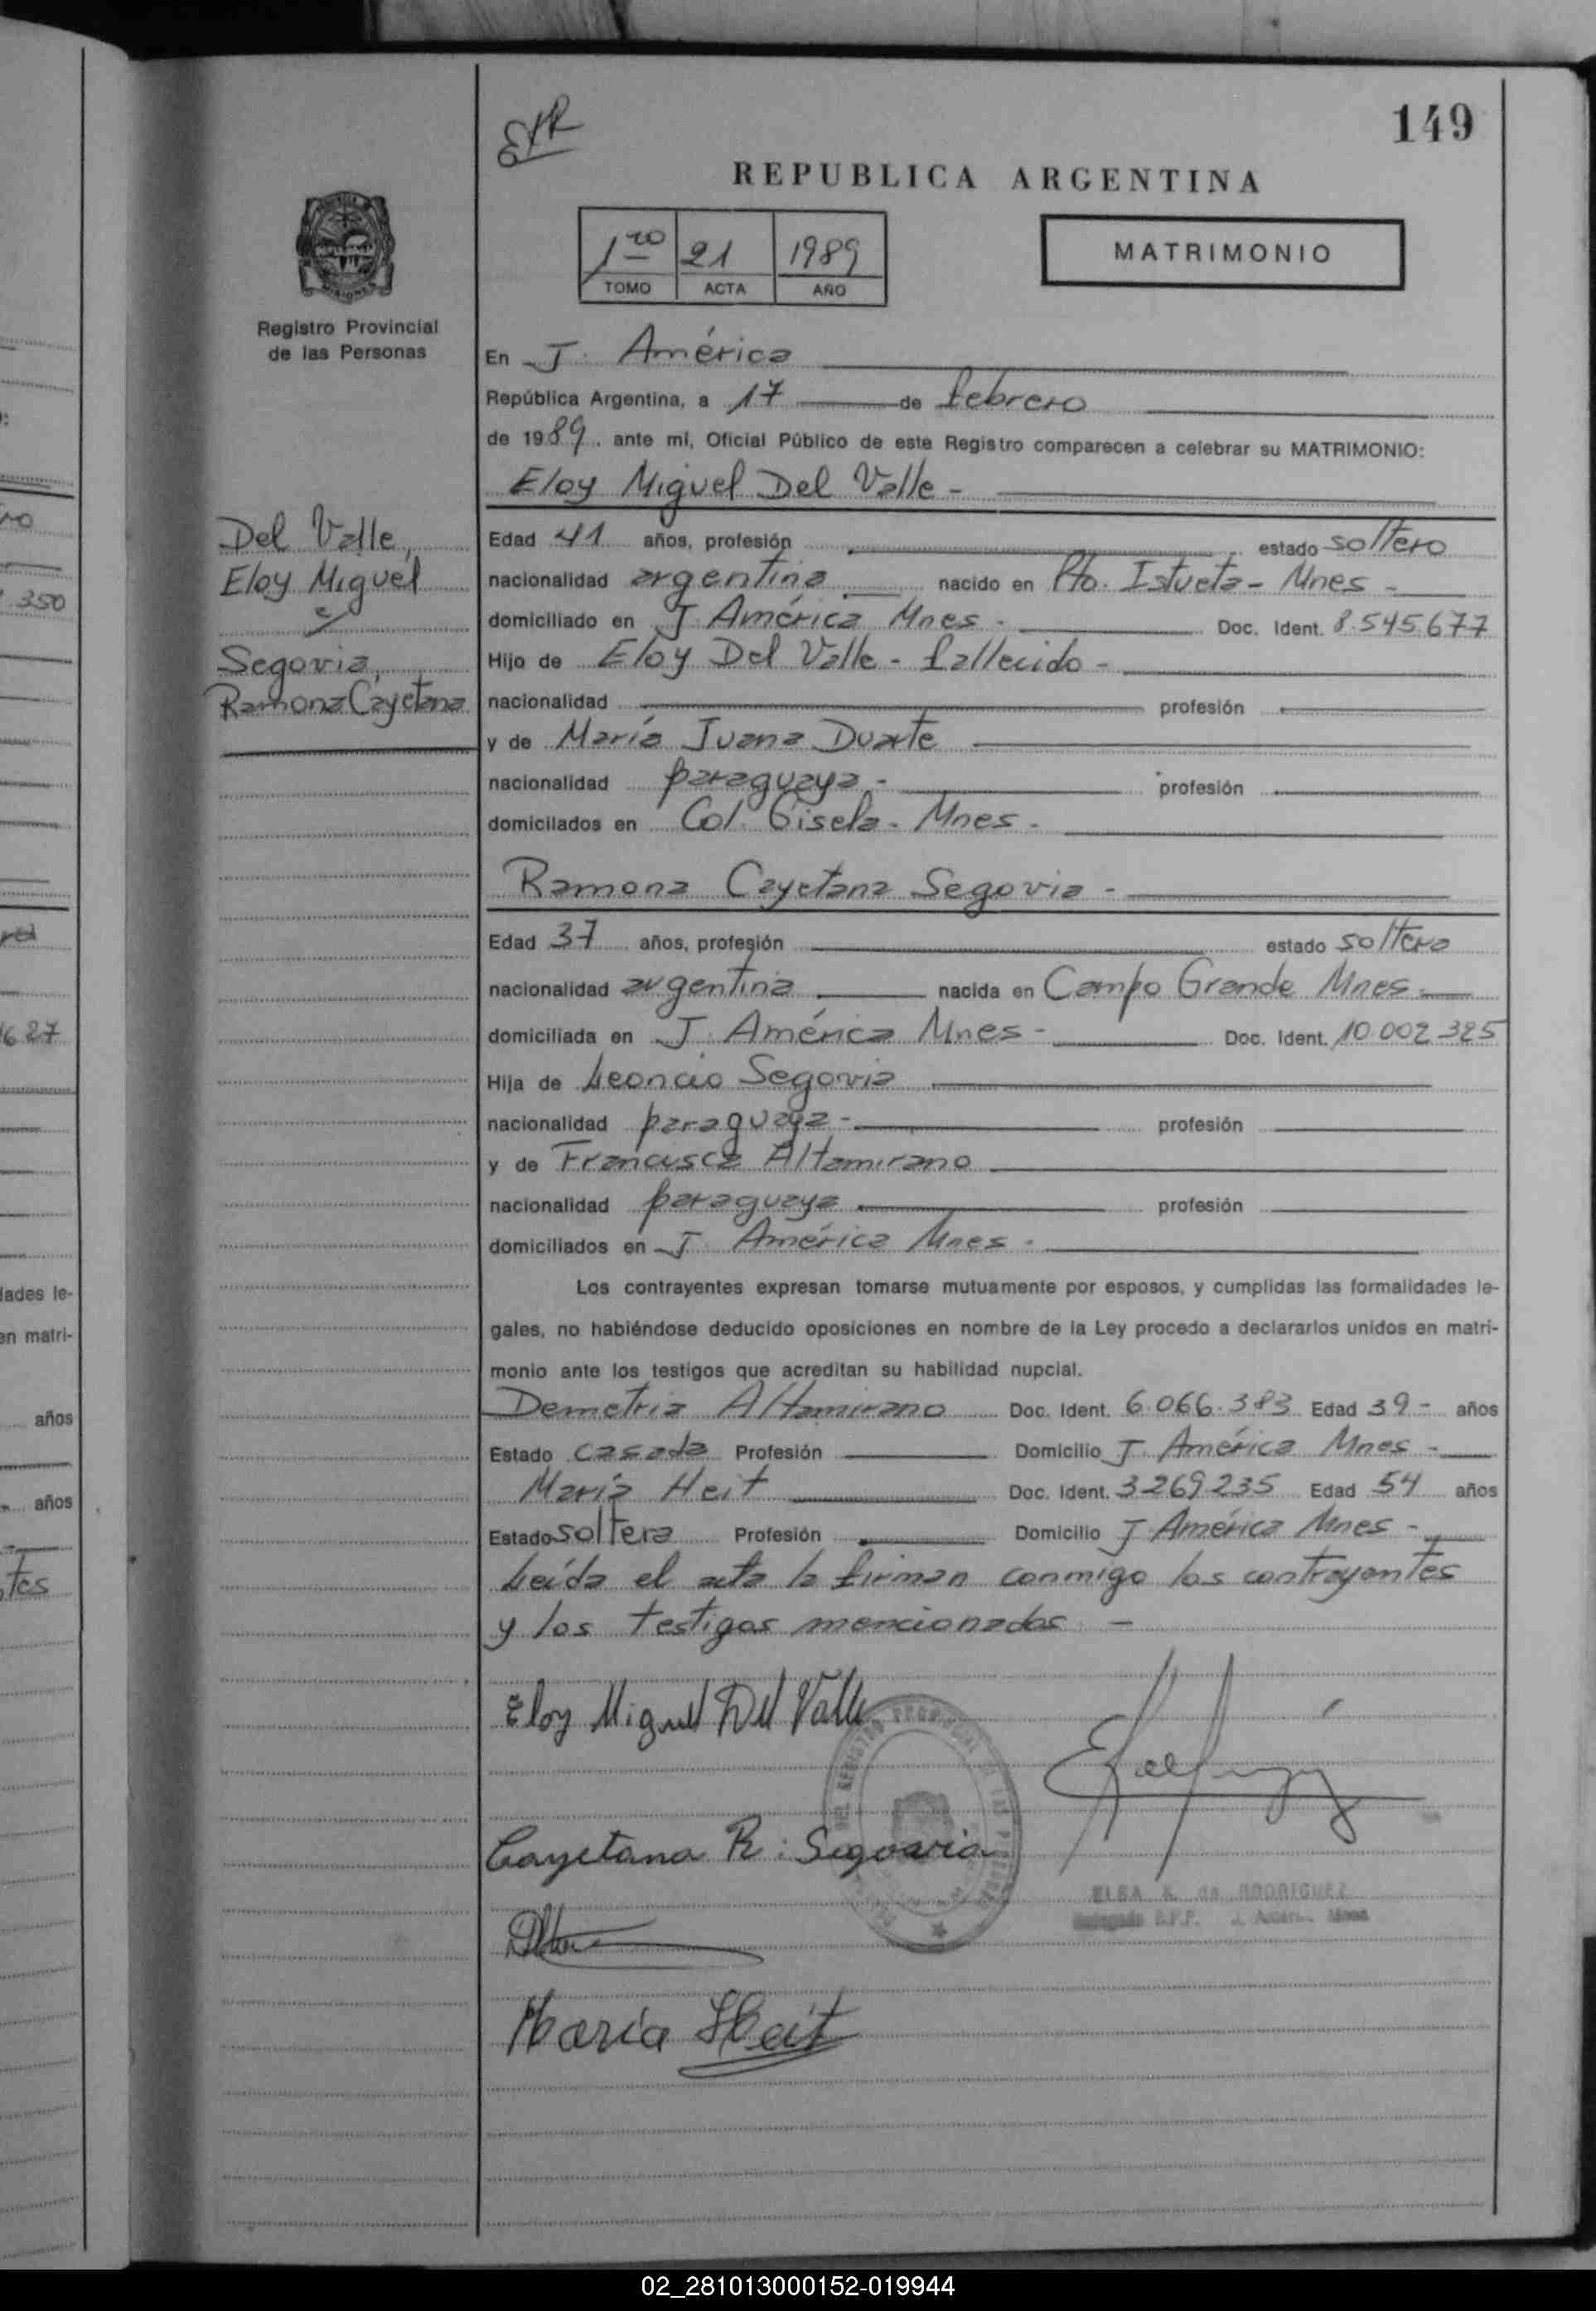 EXR
149
REPUBLICA ARGENTINA
1ro 21 1989
TOMO ACTA AÑO
MATRIMONIO
Registro Provincial
de las Personas
En J. América
República Argentina, a 17 de febrero
de 1989. ante mí, Oficial Público de este Registro comparecen a celebrar su MATRIMONIO:
Eloy Miguel Del Valle -
Del Valle,
Eloy Miguel
y
Segovia,
Ramona Cayetana
Edad 41 años, profesión estado soltero
nacionalidad argentina nacido en Pto. Istueta - Mnes -
domiciliado en J. América Mnes - Doc. Ident. 8.545.677
Hijo de Eloy Del Valle - fallecido -
nacionalidad profesión
y de María Juana Duarte
nacionalidad paraguaya - profesión
domicilados en Col. Gisela - Mnes -
Ramona Cayetana Segovia -
Edad 37 años, profesión estado soltera
nacionalidad argentina nacida en Campo Grande Mnes -
domiciliada en J. América Mnes - Doc. Ident. 10.002.385
Hija de Leoncio Segovia
nacionalidad paraguaya - profesión
y de Francisca Altamirano
nacionalidad paraguaya profesión
domiciliados en J. América Mnes -
Los contrayentes expresan tomarse mutuamente por esposos, y cumplidas las formalidades le-
gales, no habiéndose deducido oposiciones en nombre de la Ley procedo a declararlos unidos en matri-
monio ante los testigos que acreditan su habilidad nupcial.
Demetria Altamirano Doc. Ident. 6.066.383 Edad 39 - años
Estado casada Profesión Domicilio J. América Mnes -
María Heit Doc. Ident. 3269235 Edad 54 años
Estado soltera Profesión Domicilio J América Mnes -
Leída el acta la firman conmigo los contrayentes
y los testigos mencionados -
Eloy Miguel Del Valle
Cayetana R. Segovia
ELSA K. de RODRIGUEZ
María Heit
350
627
lades le-
en matri-
años
años
tes
02_281013000152-019944